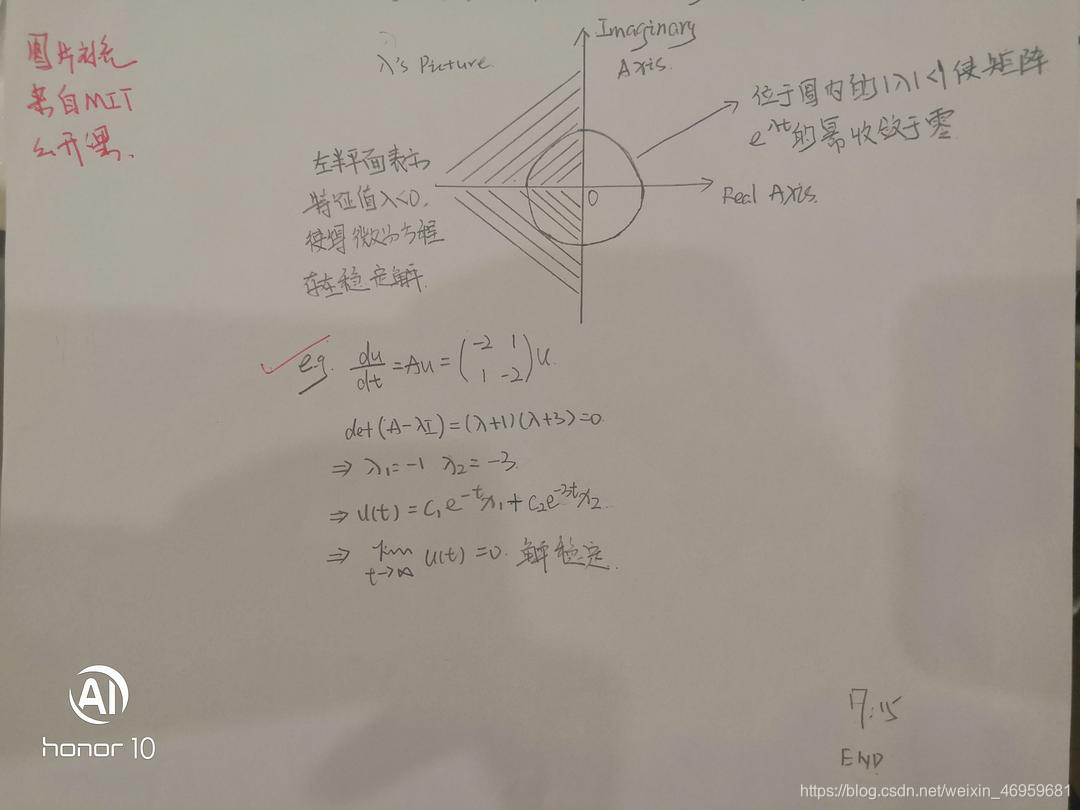 图片补充
来自MIT
公开课.
λ's Picture.
Imaginary
Axis.
位于圆内的|λ|<1使矩阵
e^λt的幂收敛于零
左半平面表示
特征值λ<0.
使得微分方程
存在稳定解.
0
Real Axis.
e.g. du/dt = Au = (-2 1; 1 -2) u.
det(A-λI)=(λ+1)(λ+3)=0.
⇒ λ₁=-1 λ₂=-3.
⇒ u(t) = C₁e^-t x₁ + C₂e^-3t x₂.
⇒ lim t→∞ u(t) = 0. 解稳定.
17:15
END
AI
honor 10
https://blog.csdn.net/weixin_46959681